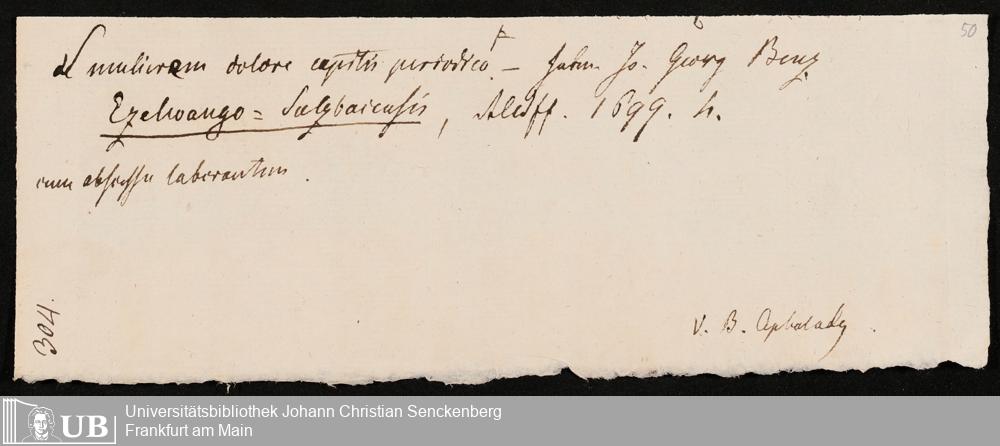 50
mulierem dolore capitis periodico – Jo. Georg Benz
Ezelwango = Salzbaicensis, Altdff. 1699. 4.
cum abscessu laborantem.
304.
V. B.
UB Universitätsbibliothek Johann Christian Senckenberg
Frankfurt am Main